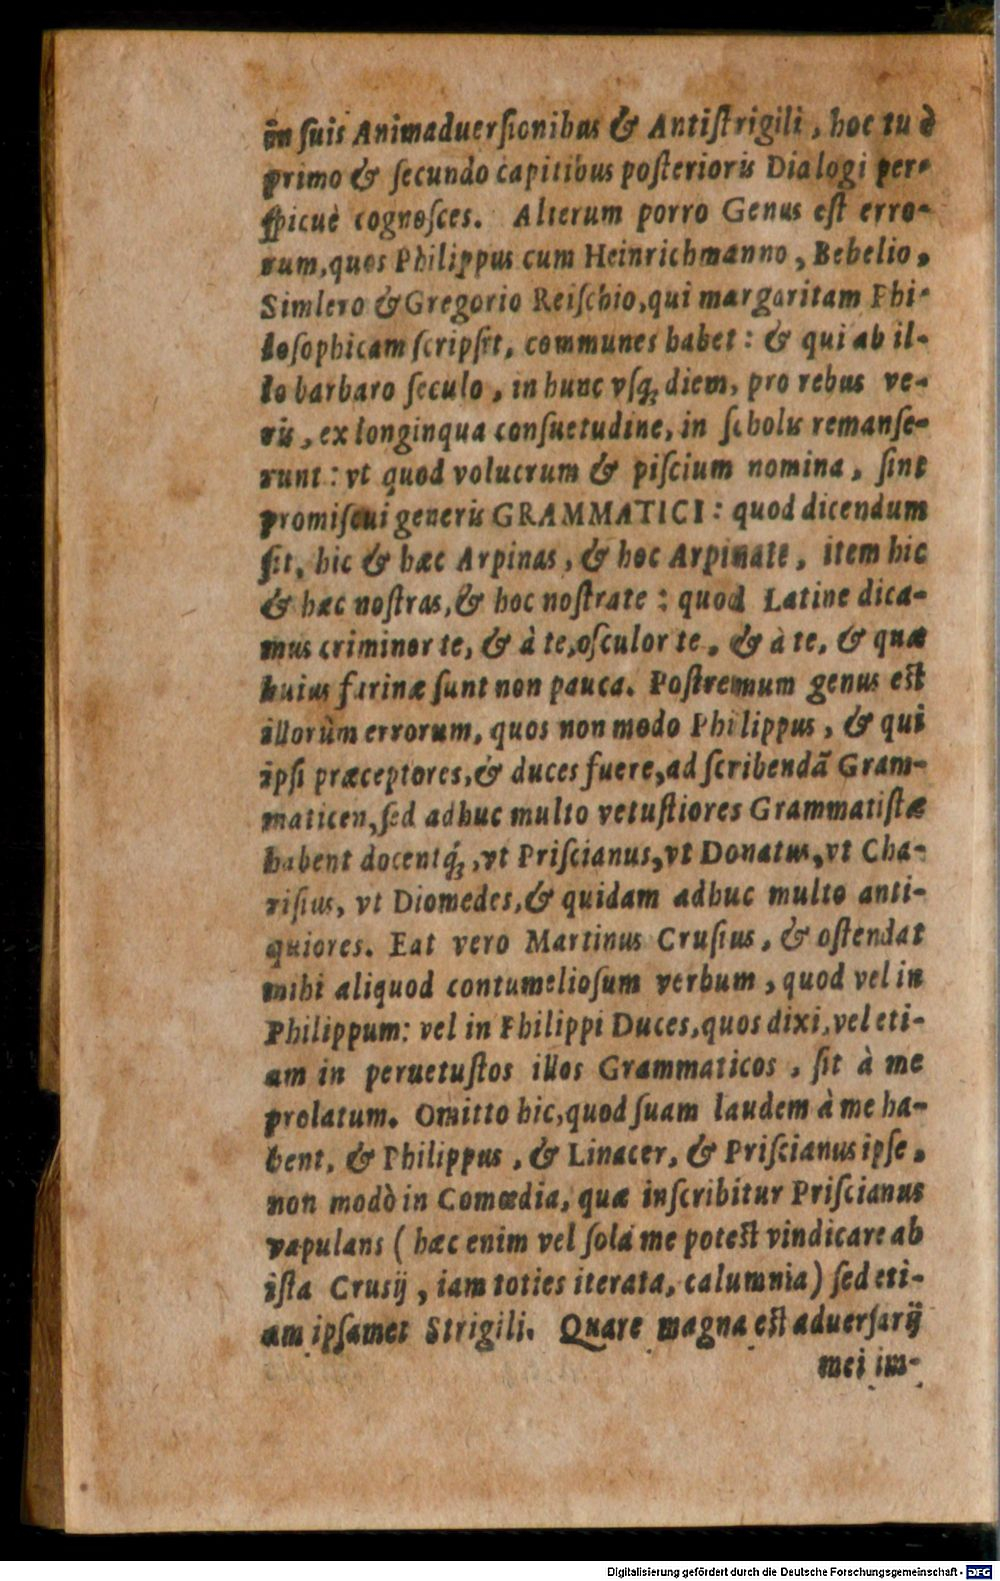 in suis Animaduersionibus & Antistrigili, hoc tu è
primo & secundo capitibus posterioris Dialogi per-
spicuè cognosces. Alterum porro Genus est erro-
rum, quos Philippus cum Heinrichmanno, Bebelio,
Simlero & Gregorio Reischio, qui margaritam Phi-
losophicam scripsit, communes habet: & qui ab il-
lo barbaro seculo, in hunc vsq; diem, pro rebus ve-
ris, ex longinqua consuetudine, in scholis remanse-
runt: vt quod volucrum & piscium nomina, sint
promiscui generis GRAMMATICI: quod dicendum
sit, hic & hæc Arpinas, & hoc Arpinate, item hic
& hæc nostras, & hoc nostrate: quod Latine dica-
mus criminor te, & à te, osculor te, & à te, & quæ
huius farinæ sunt non pauca. Postremum genus est
illorùm errorum, quos non modo Philippus, & qui
ipsi præceptores, & duces fuere, ad scribendã Gram-
maticen, sed adhuc multo vetustiores Grammatistæ
habent docentq́;, vt Priscianus, vt Donatus, vt Cha-
risius, vt Diomedes, & quidam adhuc multo anti-
quiores. Eat vero Martinus Crusius, & ostendat
mihi aliquod contumeliosum verbum, quod vel in
Philippum: vel in Philippi Duces, quos dixi, vel eti-
am in peruetustos illos Grammaticos, sit à me
prolatum. Omitto hic, quod suam laudem à me ha-
bent, & Philippus, & Linacer, & Priscianus ipse,
non modò in Comœdia, quæ inscribitur Priscianus
vapulans (hæc enim vel sola me potest vindicare ab
ista Crusij, iam toties iterata, calumnia) sed eti-
am ipsamet Strigili. Quare magna est aduersarij
mei im-
Digitalisierung gefördert durch die Deutsche Forschungsgemeinschaft - DFG